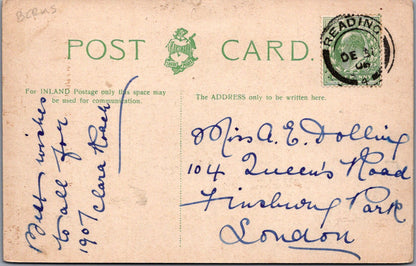 BCRMS
POST CARD.
For INLAND Postage only this space may
be used for communication.
The ADDRESS only to be written here.
READING
DE 31
06
Best wishes
to all for
1907 Clara
Miss A. E. Dolling
104 Queen's Road
Finsbury Park
London